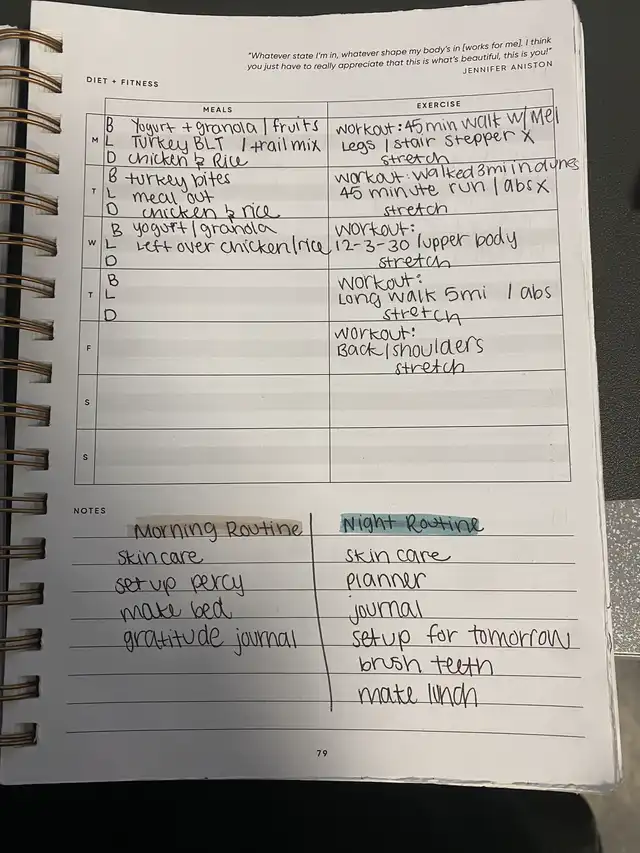 "Whatever state I'm in, whatever shape my body's in [works for me]. I think
you just have to really appreciate that this is what's beautiful, this is you!"
JENNIFER ANISTON
DIET + FITNESS
MEALS
EXERCISE
M
B Yogurt + granola / fruits
L Turkey BLT / trail mix
D chicken & Rice
workout: 45 min walk w/ Mel
Legs / stair stepper x
stretch
T
B turkey bites
L meal out
D chicken & rice
workout: walked 3mi in dunes
45 minute run / abs x
stretch
W
B yogurt / granola
L Left over chicken/rice
D
workout:
12-3-30 / upper body
stretch
T
B
L
D
workout:
Long walk 5mi / abs
stretch
F
workout:
Back / shoulders
stretch
S
S
NOTES
Morning Routine
skin care
set up percy
make bed
gratitude journal
Night Routine
skin care
planner
journal
setup for tomorrow
brush teeth
make lunch
79